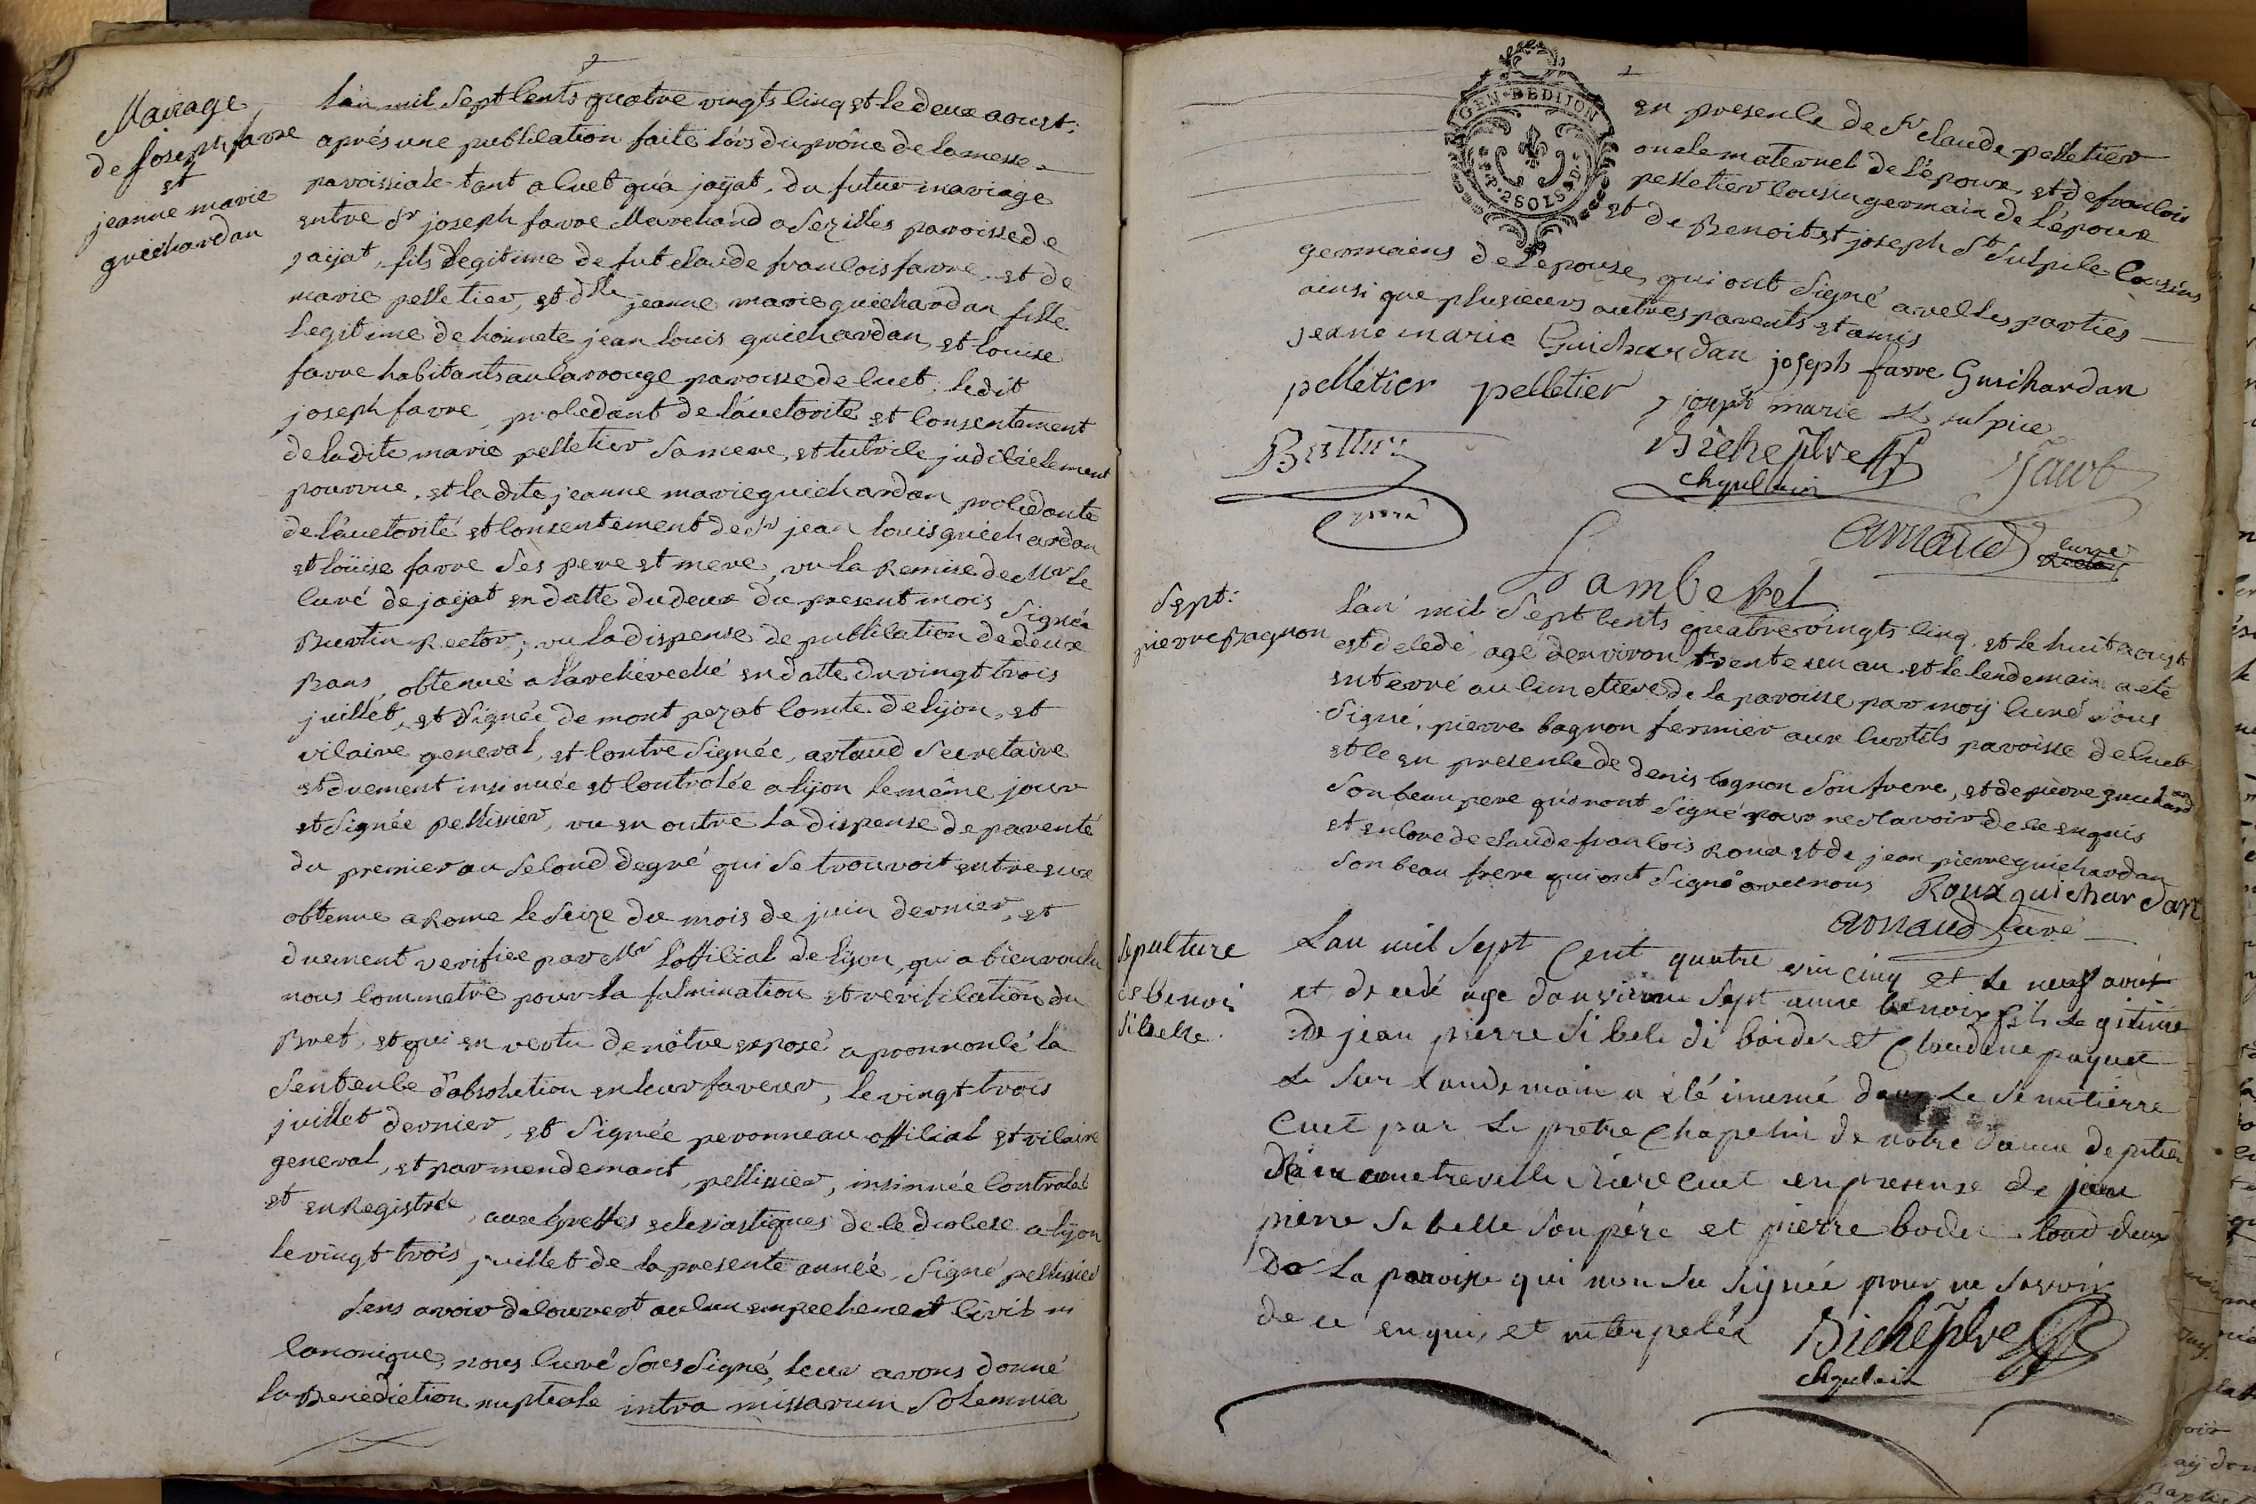 Mariage
de Joseph favre
et
jeanne marie
guichardan
L'an mil Sept Cents quatre vingts Cinq et le deux aoust;
aprés une publication faite lórs du prône de la messe
paroissiale tant a Cuet qu'a jaÿat, du futur mariage
entre Sr joseph favre Marchand a Sezilles paroisse de
jaÿat, fils legitime de fut claude francois favre et de
marie pelletier, et dlle jeanne marie guichardan fille
legitime de honnete jean louis guichardan et louise
favre habitants au Carrouge paroisse de Cuet; ledit
joseph favre, procedant de l'auctorité et consentement
de ladite marie pelletier Sa mere, et tutrice judiciélement
pourvue, et la dite jeanne marie guichardan procedante
de l'auctorité et consentement de Sr jean louis guichardan
et loüise favre Ses pere et mere, vu la Remise de Mr le
Curé de jaÿat en datte du deux du present mois Signée
Burtin Rector; vu la dispense de publication de deux
Bans, obtenué a l'archévéché en datte du vingt trois
juillet, et Signée de mont pezat Comte de lijon, et
vicaire general, et Contre Signée, artaud Secretaire
et duement insinuée et Controlée a lijon le même jour
et Signée pellissier, vu en outre la dispense de parenté
du premier au Second degré qui Se trouvoit entre eux
obtenue a Rome le Seize du mois de juin dernier, et
duement verifiée par Mr l'official de lijon, qui a bien voulu
nous Commetre pour la fulmination et verification du
Bref, et qui en vertu de nôtre exposé a prononcé la
Sentence d'absolution en leur faveur, le vingt trois
juillet dernier, et Signée peronneau official et vicaire
general, et par mendemant, pellissier, insinuée Controlée
et enRegistrée, aux greffes eclesiastiques de le diocese a lijon
le vingt trois juillet de la presente année, Signé pellissier
Sens avoir découvert aucun empechement Civil ni
Canonique, nous Curé Sous Signé, leur avons donné
la Benediction nuptiale intra missarum Solemnia
GEN. DE DIJON
P.P. 2 SOLS 8 D.
en presence de Sr claude pelletier
oncle maternel de l'époux, et de francois
pelletier Cousin germain de l'époux
et de Benoit et joseph St Sulpice Cousins
germains de l'epouse, qui ont Signé avec les parties
ainsi que plusieurs autres parents et amis
jeane marie Guichardan joseph favre Guichardan
pelletier pelletier joseph marie St Sulpice
Biche ptre
chapelain
Jacob
arnaud curé
Sept:
pierre Bagnon
L'an mil Sept Cents quatre vingts Cinq, et le huit aoust
est decedé agé d'environ trente un an et le lendemain a eté
enterré au Cimetiere de la paroisse par moÿ Curé Sous
Signé, pierre bagnon fermier aux Curtils paroisse de Cuet
et ce en presence de denis bagnon Son frere, et de pierre guichardan
Son beau pere qui n'ont Signé pour ne Scavoir de ce enquis
et encore de claude francois Roux et de jean pierre guichardan
Son beau frere qui ont Signé avec nous Roux guichardan
arnaud curé
Sepulture
de benoi
Sibelle.
Lan mil Sept Cent quatre vin cinq et le neuf aout
et decedé age danviron Sept anne benoix fils legitime
de jean pierre Sibele di boider et Claudine paquet
le Sur landemain a été inumé dans le Semitierre
Cuet par le pretre Chapelin de notre dame de pitier
rière Cuet en presense de jean
pierre Sibelle Son pére et pierre boder tout deux
de la paroisse qui non Su Signée pour ne Savoir
de ce enquis et interpelée Biche ptre
chapelain